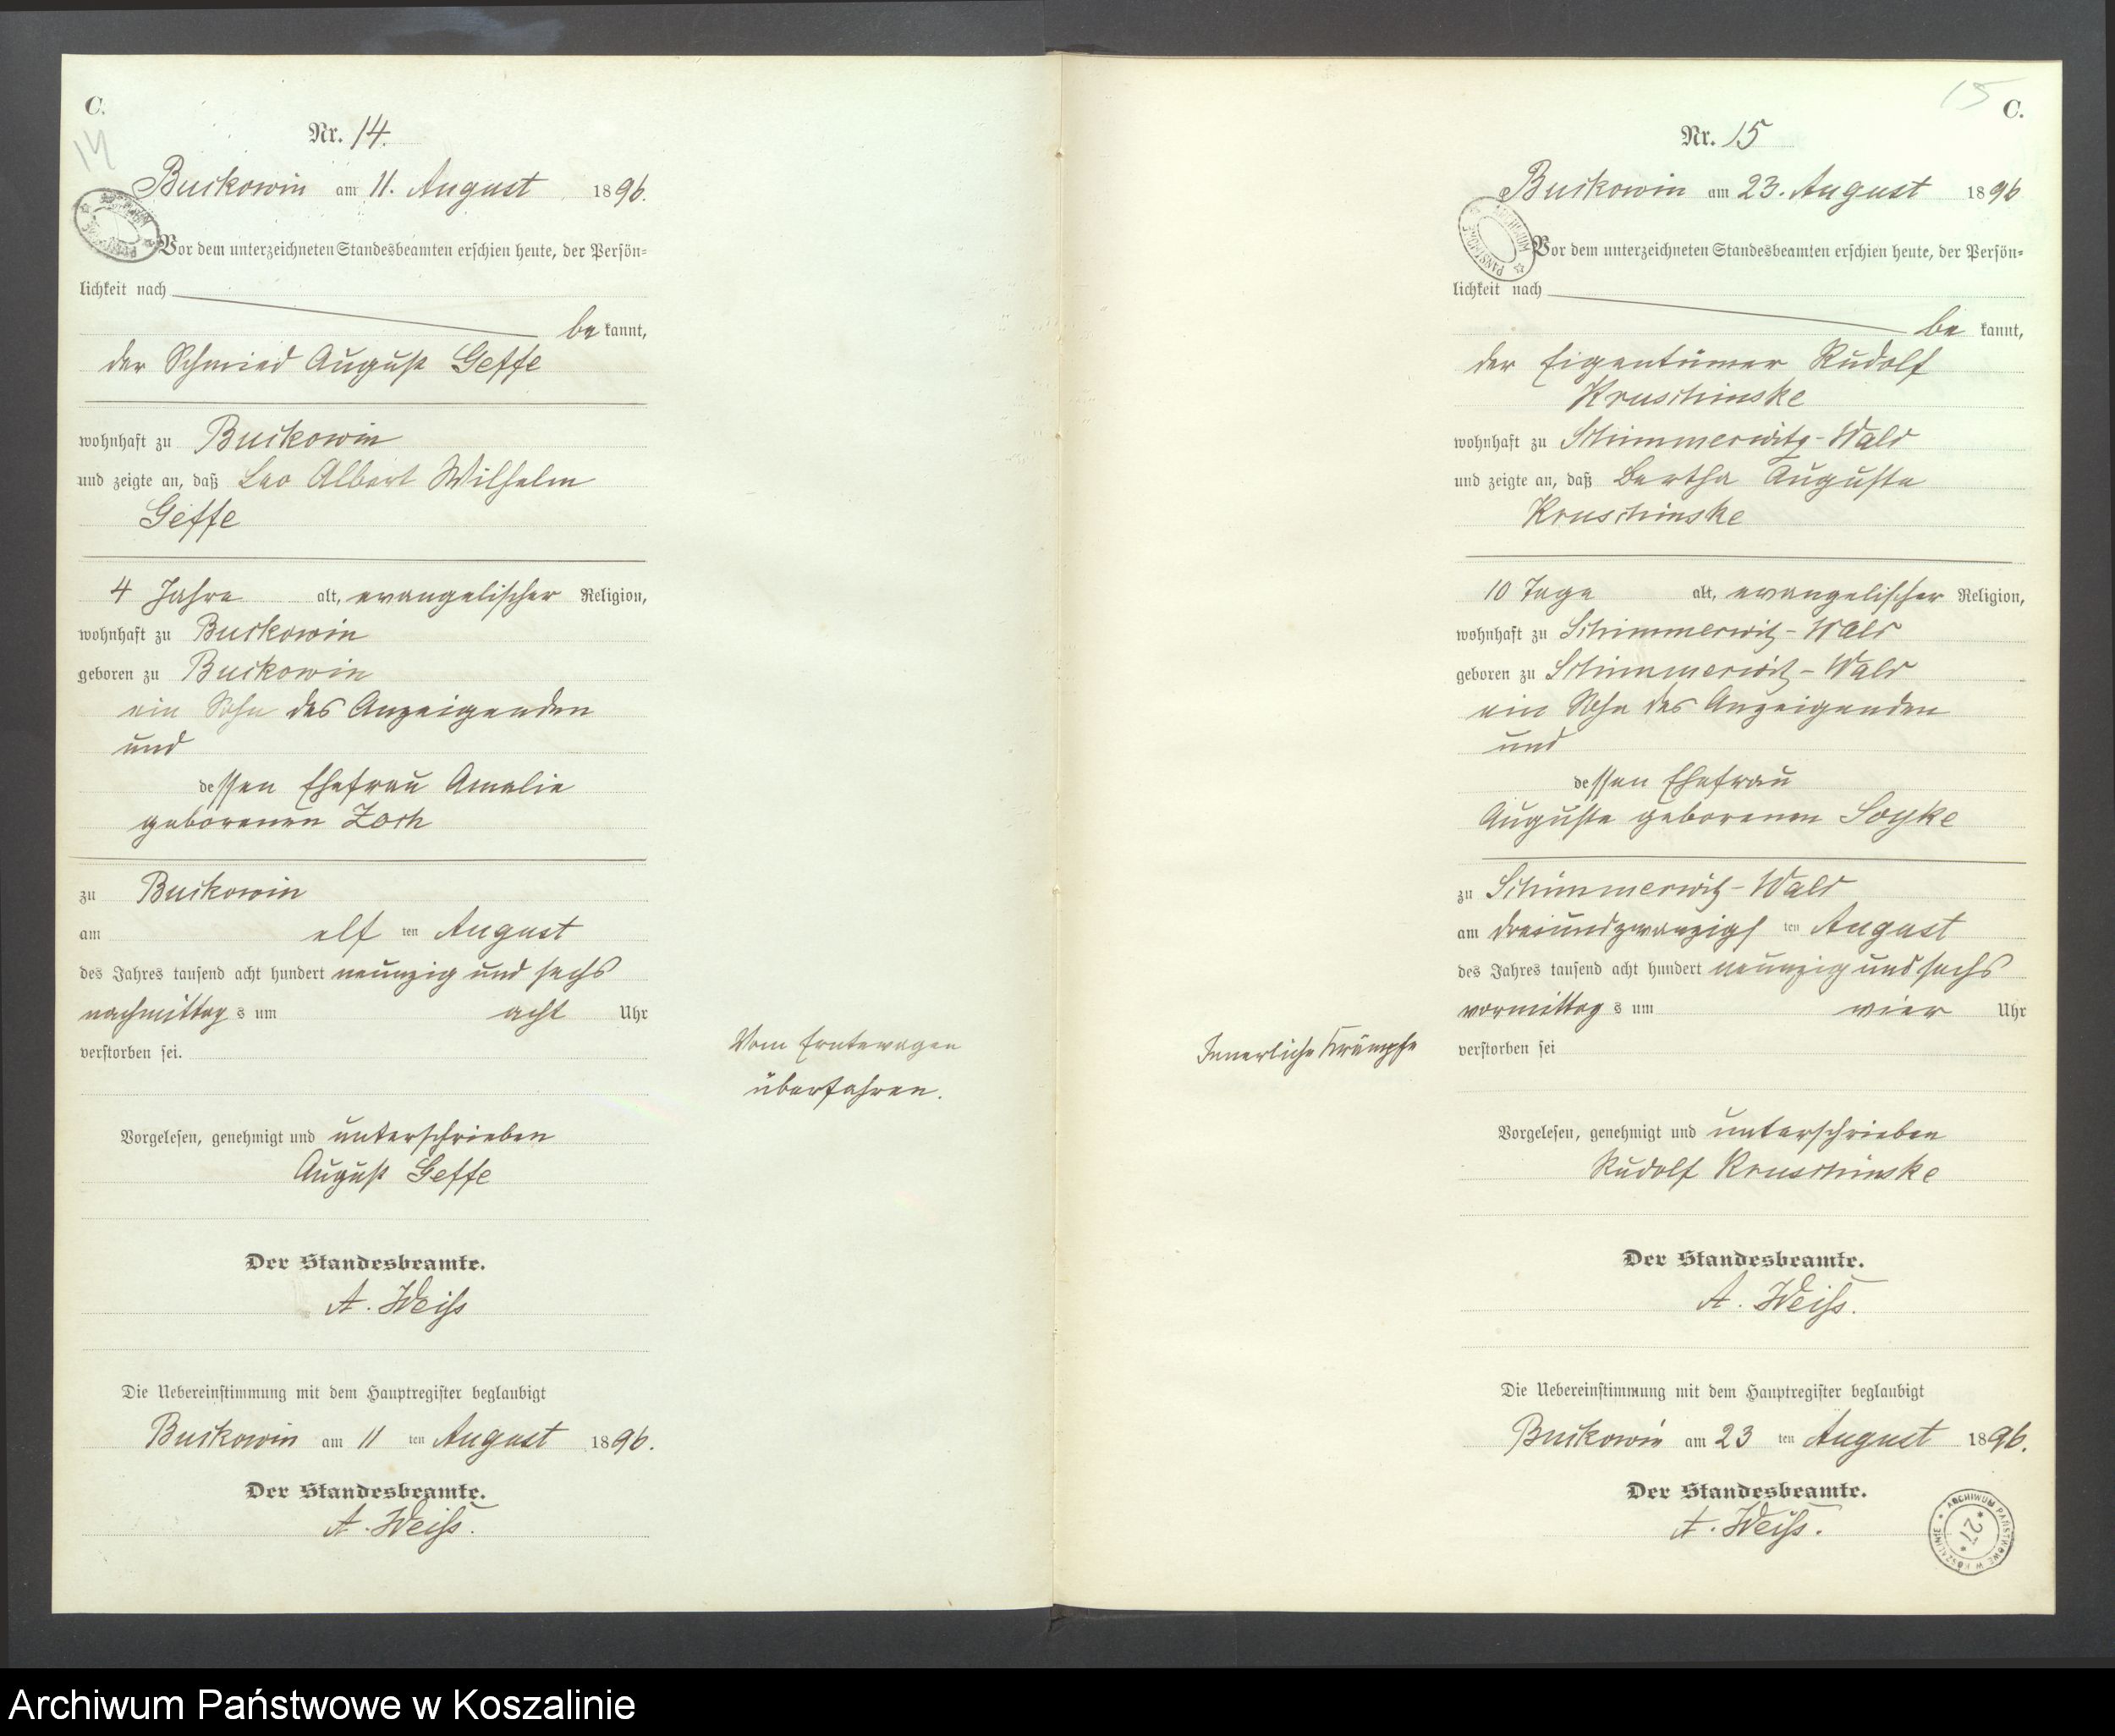 C.
14
Nr. 14.
Buckowin am 11. August 1896.
Vor dem unterzeichneten Standesbeamten erschien heute, der Persön-
lichkeit nach
be kannt,
der Schmied August Geffe
wohnhaft zu Buckowin
und zeigte an, daß Leo Albert Wilhelm
Geffe
4 Jahre alt, evangelischer Religion,
wohnhaft zu Buckowin
geboren zu Buckowin
ein Sohn des Anzeigenden
und
dessen Ehefrau Amalie
geborenen Zoch
zu Buckowin
am elf ten August
des Jahres tausend acht hundert neunzig und sechs
nachmittag s um acht Uhr
verstorben sei.
Vom Erntewagen
überfahren.
Vorgelesen, genehmigt und unterschrieben
August Geffe
Der Standesbeamte.
A. Weiss
Die Uebereinstimmung mit dem Hauptregister beglaubigt
Buckowin am 11 ten August 1896.
Der Standesbeamte.
A. Weiss.
15
C.
Nr. 15
Buckowin am 23. August 1896
Vor dem unterzeichneten Standesbeamten erschien heute, der Persön-
lichkeit nach
be kannt,
der Eigentümer Rudolf
Kruschinske
wohnhaft zu Schimmerwitz-Wald
und zeigte an, daß Bertha Auguste
Kruschinske
10 Tage alt, evangelischer Religion,
wohnhaft zu Schimmerwitz-Wald
geboren zu Schimmerwitz-Wald
ein Sohn des Anzeigenden
und
dessen Ehefrau
Auguste geborenen Soyke
zu Schimmerwitz-Wald
am dreiundzwanzigs ten August
des Jahres tausend acht hundert neunzig und sechs
vormittag s um vier Uhr
verstorben sei
Innerliche Krämpfe
Vorgelesen, genehmigt und unterschrieben
Rudolf Kruschinske
Der Standesbeamte.
A. Weiss.
Die Uebereinstimmung mit dem Hauptregister beglaubigt
Buckowin am 23 ten August 1896.
Der Standesbeamte.
A. Weiss.
ARCHIWUM PAŃSTWOWE W KOSZALINIE
27
Archiwum Państwowe w Koszalinie